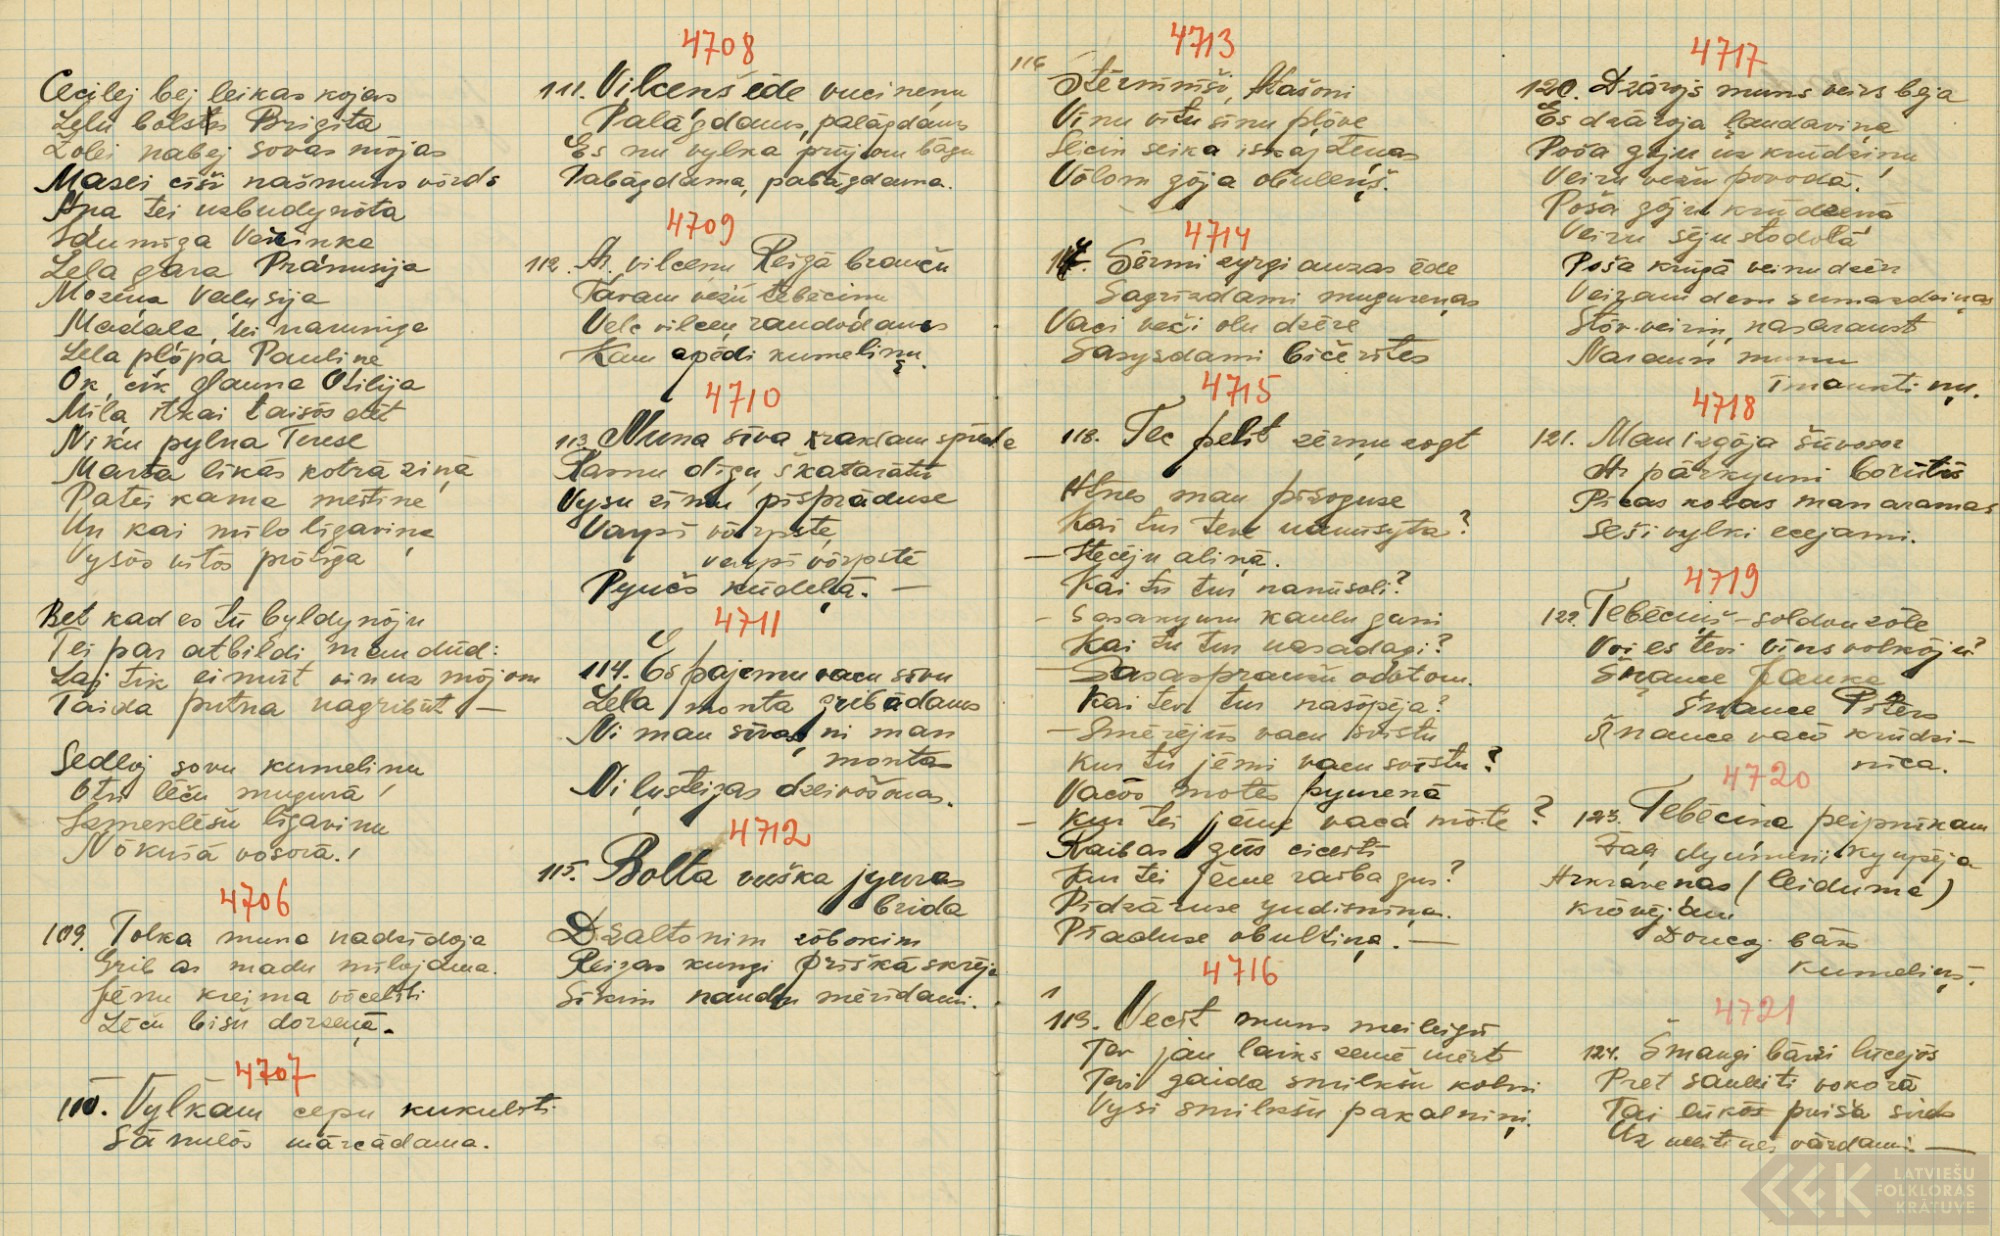 Cecilej bej leikas kojas
Lelu bolstu Brigita
Žolei nabej sovas mōjas
Masei cīši našmuns vōrds
Ana tei uzbudynōta
Lela gara Pranusija
Mozeņa Valusija
Madaļa, tei naruniga
Lela plōpa Pauliņe
Ok, cik jauna Otilija
Mila, itkai taisōs cēt
Niku pylna Terese
Marta likās kotrā ziņā
Patei kama meitine
Un kai milo līgaviņa
Vysōs vitōs prōtiga
Bet kad es tū byldynōju
Tei par atbildi man dūd:
Laj tik eimūt vinuz mōjom
Taida putna nagribūt —
Sedloj sovu kumeliņu
Otri lēču mugurā!
Sameklēšu līgaviņu
Nōkušā vosorā!
4706
109. Tolka muna nadzīdoja
Grib ar madu mīlojama.
Jēmu kreima vōceliti
Lēču bišu dorzeņā.
4707
110. Vylkam cepu kukulsti
Sānulōs mārcādama.
4708
111. Vilceņš ēde vuciņeņu
Palāgdams, palāgdams
Es nu vylka prūjom bāgu
Pabāgdama, pabāgdama.
4709
112. Ar vilceņu Reigā braučū
Tāvam vežu tebēciņu
Velc vilceņ raudōdams
Kam apēdi kumeliņu.
4710
113. Muna sīva kraklam sprēde
Pasmu dīgu, škatarātu
Vysu zīmu pīsprāduse
Varpi vōrpstē,
varpi vōrpstē
Pyučs kūdeļā. —
4711
114. Es pajemu vacu sīvu
Lela monta gribādams
Ni man sīvas, ni man
montas
Ni ļusteigas dzeivōšonas.
4712
115. Bolta vuška jyuras
brida
Dzaltonim zōbokim
Reigas kungi priškā skrēja
Sīkim naudu mēridami.
4713
116 Stērninīši, Mašoni
Vīnu vitu sīnu plōve
Slicin seika iskaptenas
Vōlom gōja obuleņš.
4714
117. Sērmi zyrgi auzas ēde
Sagrīzdami mugureņas
Vaci veči olu dzēre
Sasysdami bičerītes
4715
118. Tec pelīt zērņu zogt
Atnes man pīsoguse
Kai tur teve nanusyta?
— Stecēju aliņā.
Kai tu tur nanūsoli?
— Sasakyuru kauļu guni
Kai tu tur nasadagi?
— Sasaspraužu odotom.
Kai tev tur nasōpēja?
— Smērējūs vacu svīstu
Kur tu jēmi vacu svīstu?
Vacōs motes pyurenā
— Kur tei jēme vacā mōte?
Raibas gūs ciceiti
Kur tei jēme raiba gus?
Pīdzāruse yudisniņa.
Pīaduse obultiņa. —
4716
1
119. Vecīt muns meileigū
Tev jau laiks zemē mērt
Tevi gaida smilkšu kolni
Vysi smilkšu pakalniņi.
4717
120. Dzārojs muns veirs beja
Es dzāroja laudaviņa
Poša gōju uz krūdziņu
Veiru vežu povodā.
Poša gōju krūdzenā
Veiru sēju stodolā
Poša krūgā veinu dzēr
Veiram devu sumazdziņas
Stōv veiriņ, nasaraust
Narauss munu
īmauktiņu.
4718
121. Man izgōja šūvosor
Ar pārkyuni borūtīs
Pīcas kozas man aramas
Seši vylki ecejami.
4719
122. Tebēciņš — soldon zōle
Voi es tevi vīns volkōju?
Šņauce Jaņka
Šņauce Pīters
Šņauce vacō krūdzi-
nīca.
4720
123. Tebēciņa peipmīkam
Zaļi dyumeni kyupēja
Azkrāveņas (leiduma)
krōvējam
Doncoj bārs
kumeliņš.
4721
124. Šmaugi bārzi lūcejōs
Pret sauleiti vokorā
Tai lūkōs puiša sirds
Uz meitines vōrdami. —
LATVIEŠU
FOLKLORAS
KRĀTUVE